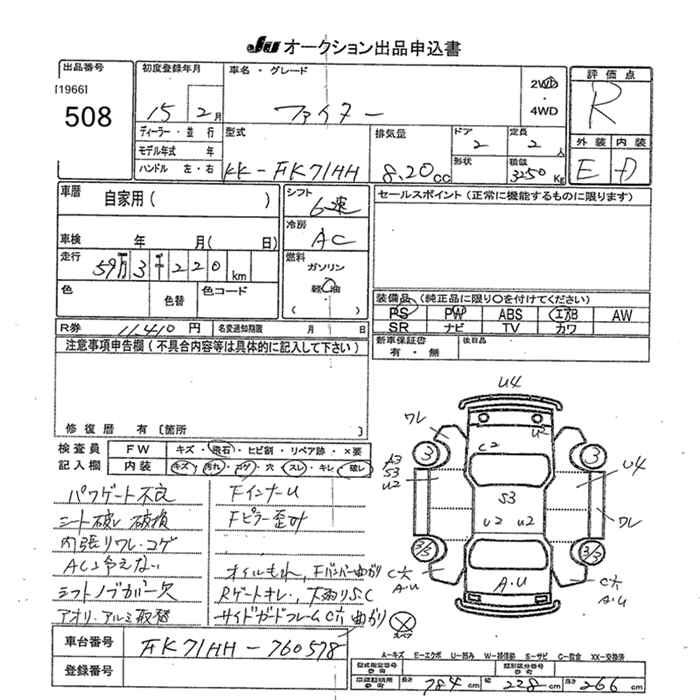 JU オークション出品申込書
出品番号
[1966]
508
初度登録年月
15 2月
車名・グレード
ファイター
2WD
・
4WD
評価点
R
外装 内装
E D
ディーラー・並行
モデル年式 年
ハンドル 左・右
型式
KK-FK71HH
排気量
8.20cc
ドア
2
定員
2人
形状
積載
3250Kg
車歴
自家用( )
車検 年 月( 日)
走行
59万3千220km
色
色替
色コード
シフト
6速
冷房
AC
燃料
ガソリン
軽油
( )
セールスポイント(正常に機能するものに限ります)
装備品(純正品に限り○を付けてください)
PS PW ABS エアB AW
SR ナビ TV カワ
新車保証書
有・無
後日品
R券 11,410円
名変通知期限 月 日
注意事項申告欄(不具合内容等は具体的に記入して下さい)
修復歴 有〔箇所 〕
検査員
記入欄
FW キズ・飛石・ヒビ割・リペア跡・×要
内装 キズ・汚れ・コゲ・穴・スレ・キレ・破レ
パワゲート不良
シート破レ 破損
内張りワレ・コゲ
AC冷えない
シフトノブカバー欠
アオリ・アルミ取替
FインナーU
Fピラー歪み
オイルもれ、Fバンパー曲がり
Rゲートキレ、下廻りS.C
サイドガードフレームC穴 曲がり
スペア
U4
ワレ
3
A3
S3
U2
C2
U2
3
U4
S3
U2 U2
ワレ
C穴
A・U
A・U
C穴
A・U
車台番号
FK71HH-760578
登録番号
A-キズ E-エクボ U-凹み W-補修跡 S-サビ C-腐食 XX-交換済
型式指定番号
参考
類別区分番号
参考
長さ 784cm 幅 228cm 高さ 266cm